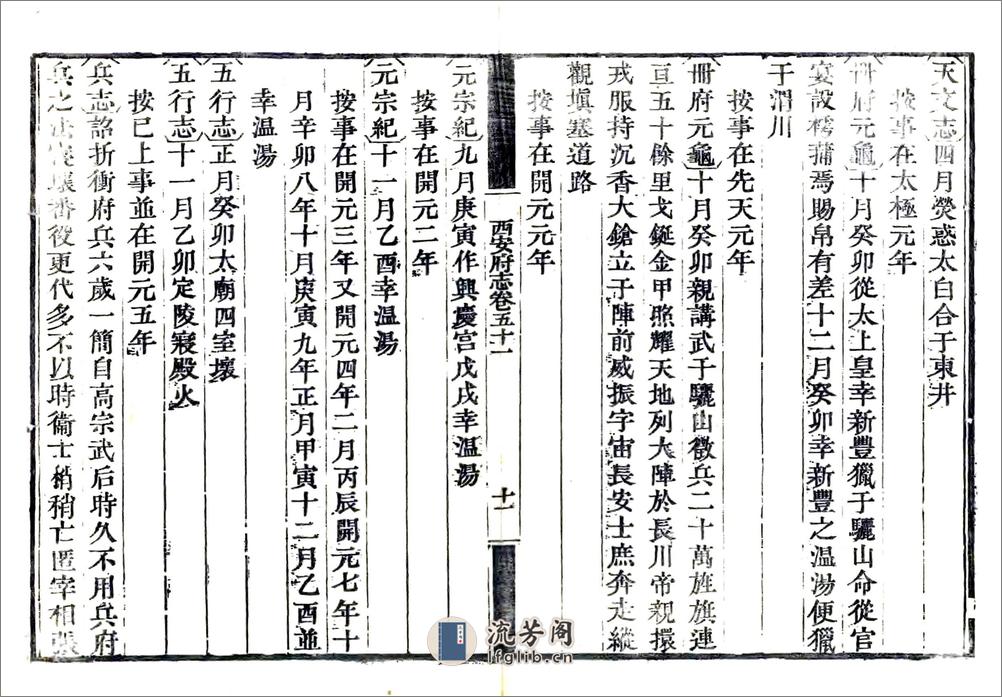 天文志四月熒惑太白合于東井
按事在太極元年
冊府元龜十月癸卯從太上皇幸新豐獵于驪山命從官
宴設樗蒲焉賜帛有差十二月癸卯幸新豐之温湯便獵
于渭川
按事在先天元年
冊府元龜十月癸卯親講武于驪山徵兵二十萬旌旗連
亘五十餘里戈鋋金甲照耀天地列大陣於長川帝親擐
戎服持沉香大鎗立于陣前威振宇宙長安士庶奔走縱
觀塡塞道路
按事在開元元年
西安府志卷五十一
十一
元宗紀九月庚寅作興慶宫戊戌幸温湯
按事在開元二年
元宗紀十一月乙酉幸温湯
按事在開元三年又開元四年二月丙辰開元七年十
月辛卯八年十月庚寅九年正月甲寅十二月乙酉並
幸温湯
五行志正月癸卯太廟四室壞
五行志十一月乙卯定陵寢殿火
按已上事並在開元五年
兵志詔折衝府兵六歲一簡自高宗武后時久不用兵府
兵之法寖壞番役更代多不以時衞士稍稍亡匿宰相張
流芳阁
lfglib.cn